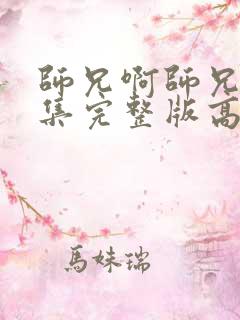 師兄啊師兄
集完整版高
馬妹瑞